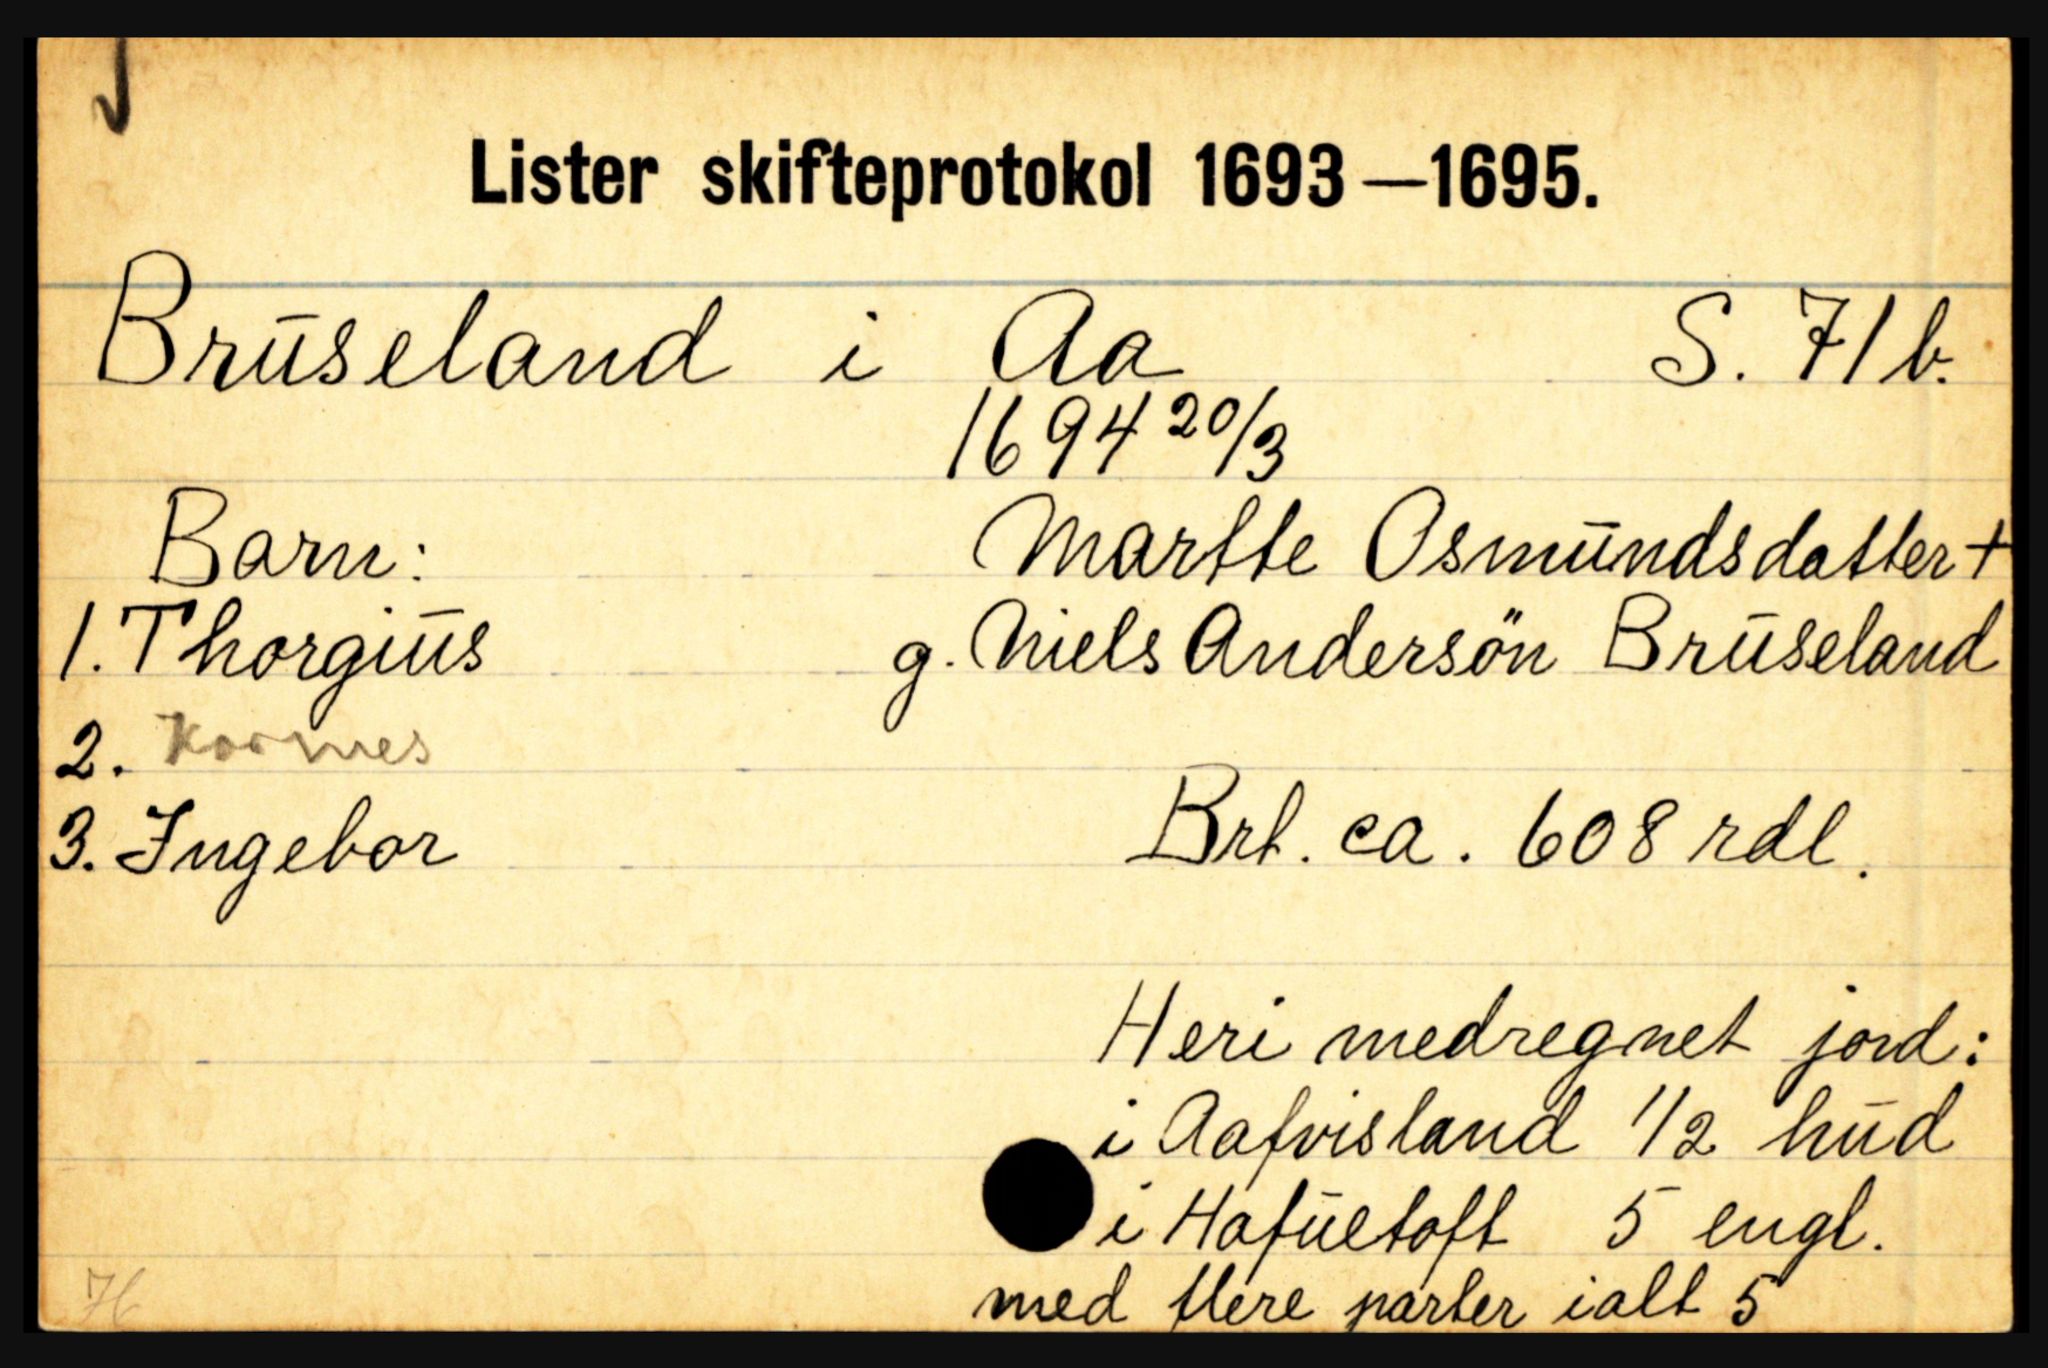 Lister skifteprotokol 1693—1695.
Brūseland i Aa S. 71 b.
1694 20/3
Barn: Martte Osmūndsdatter +
1. Thorgiūs g. Niels Andersön Brūseland
2. Kormes
3. Ingebor Brt. ca. 608 rdl.
Heri medregnet jord:
i Aafvisland 1/2 hūd
i Hafūetoft 5 engl.
med flere parter ialt 5